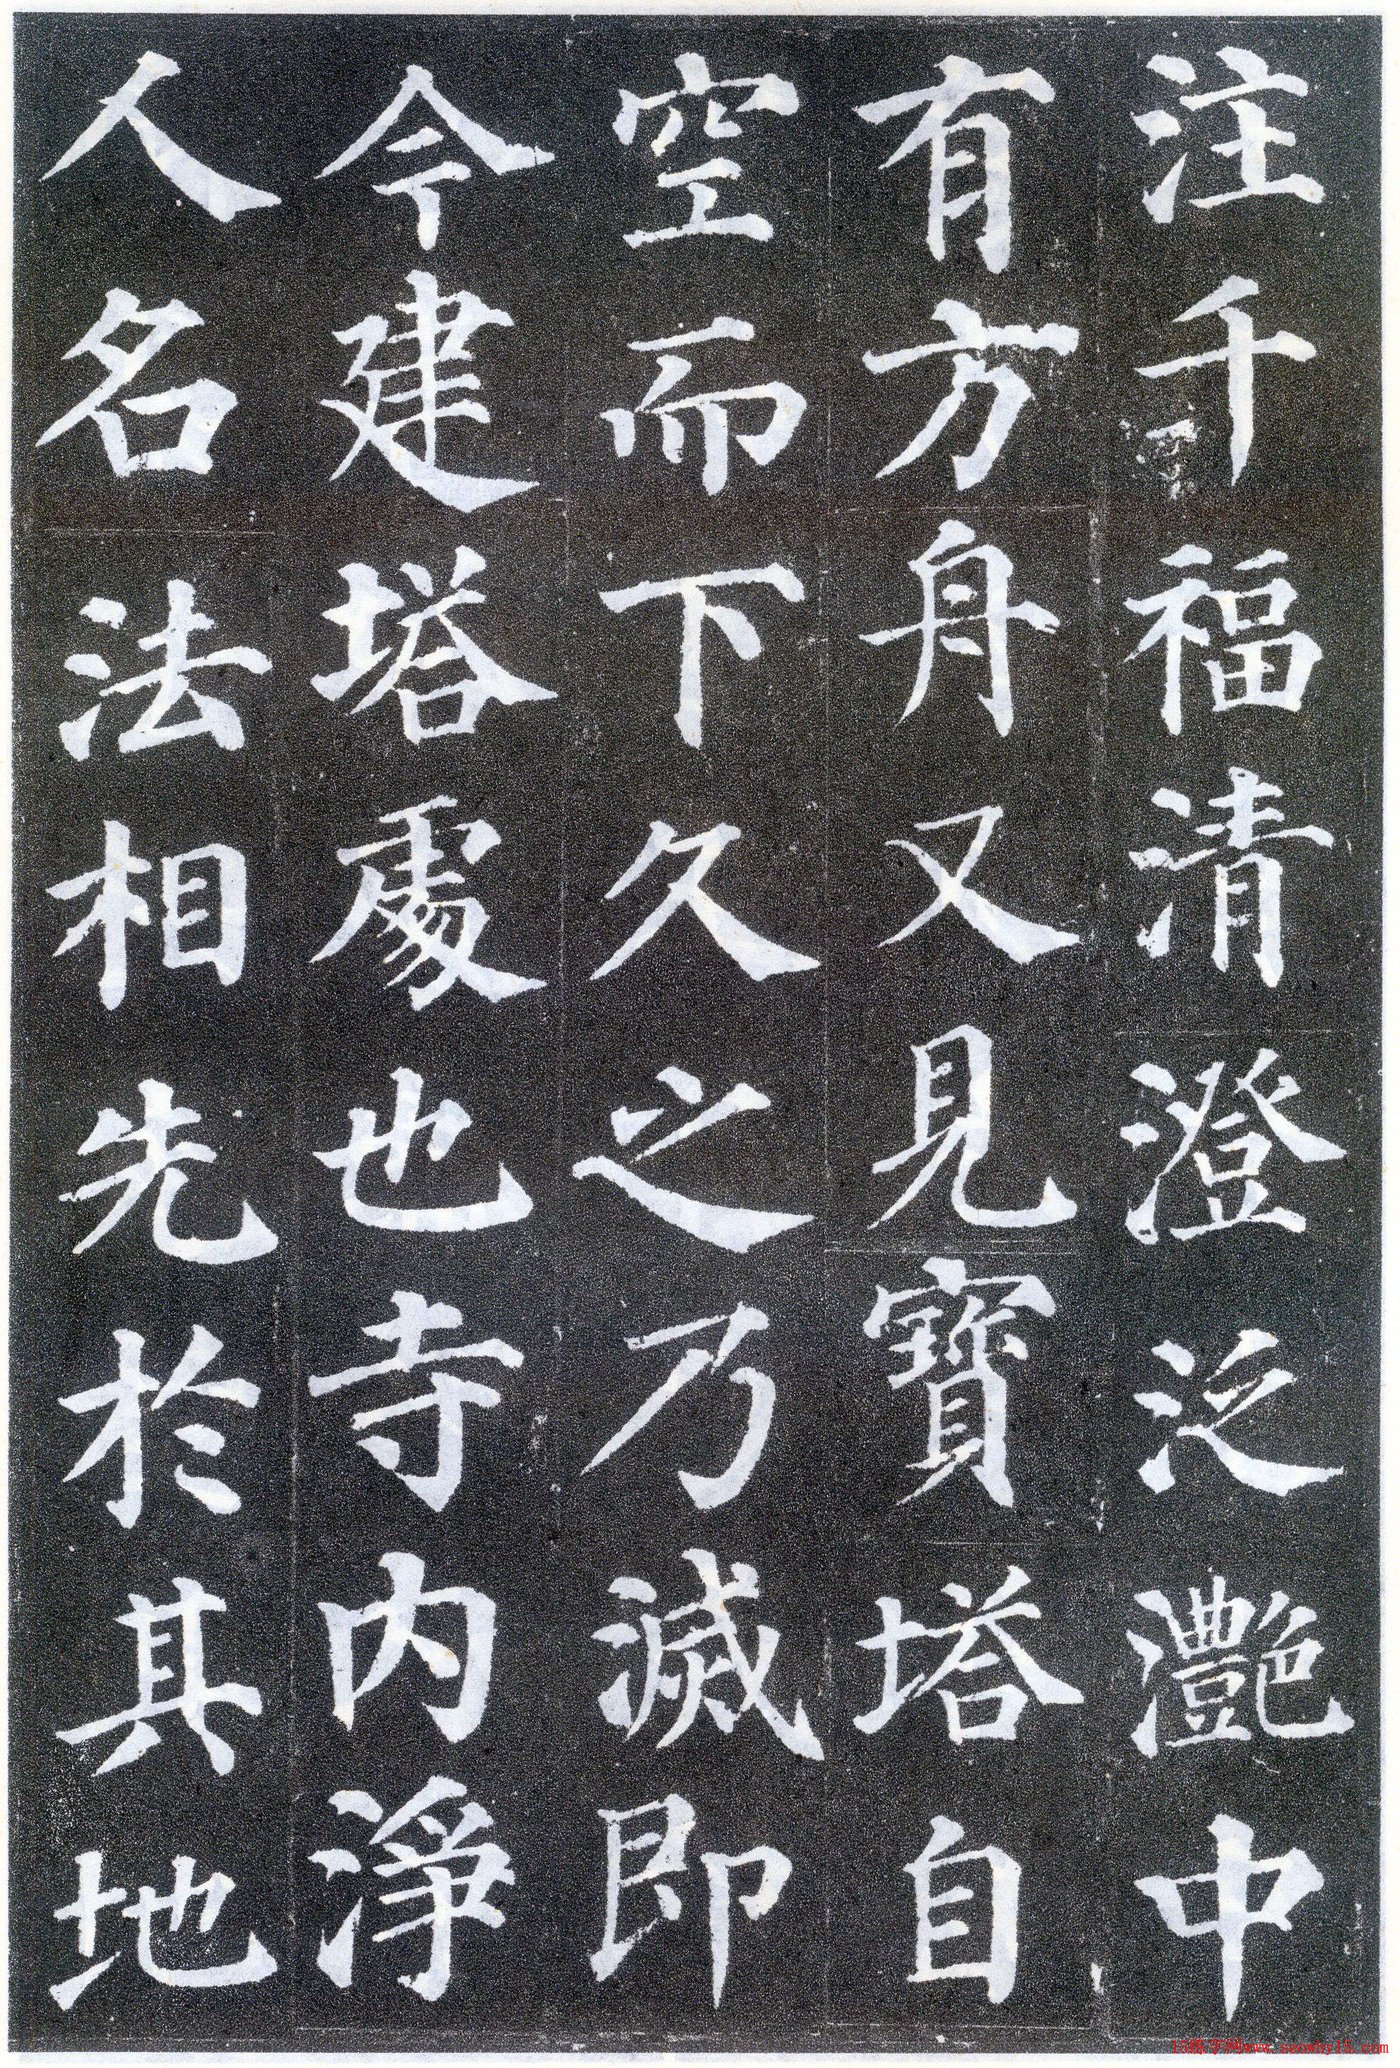 注千福清澄泛灔中
有方舟又見寶塔自
空而下久之乃滅即
今建塔處也寺內淨
人名法相先於其地